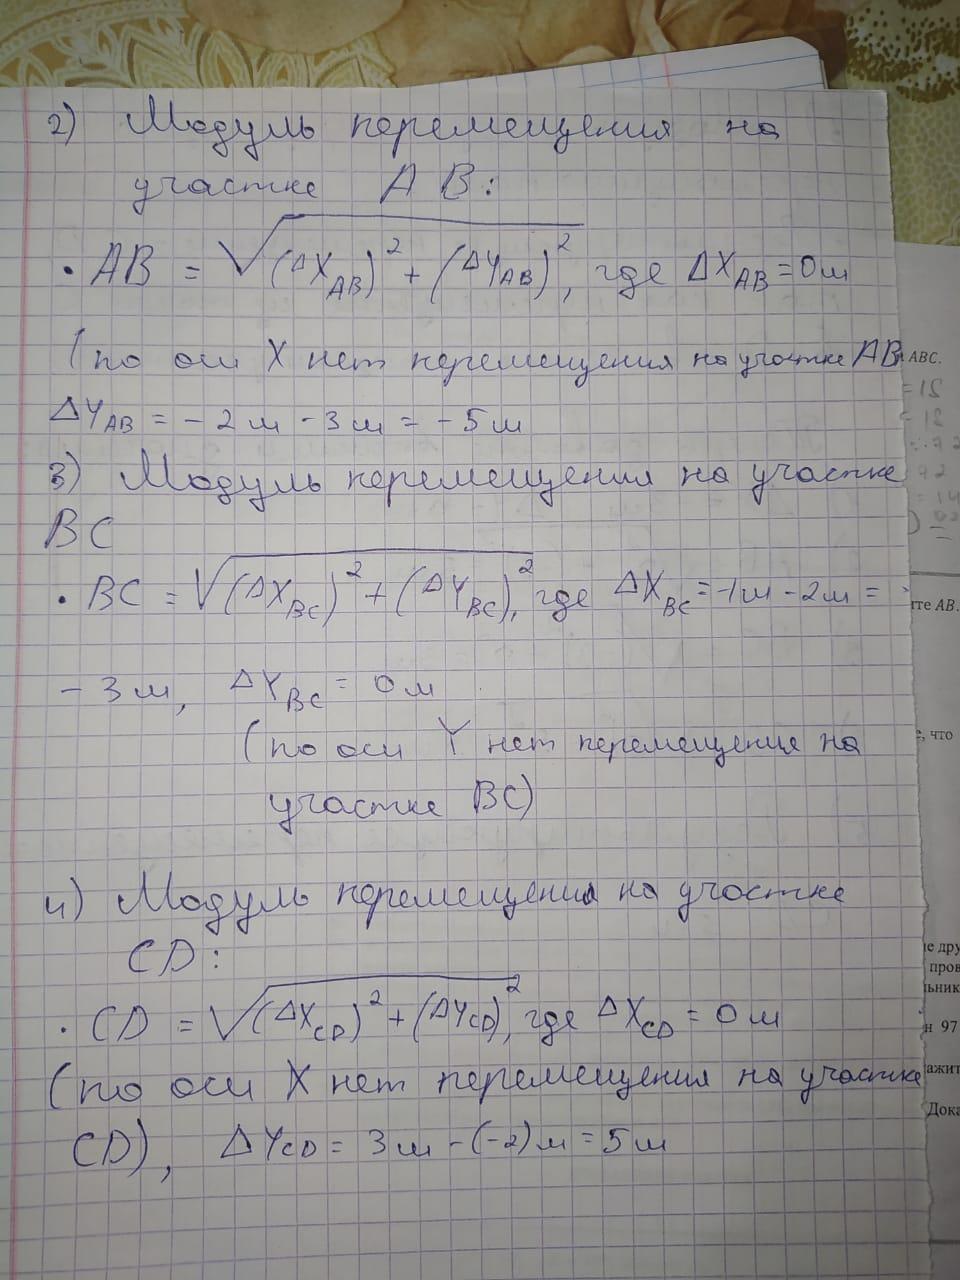 2) Модуль перемещения на
участке AB:
• AB = √(ΔX_AB)² + (ΔY_AB)², где ΔX_AB = 0 м
(по оси X нет перемещения на участке AB
ΔY_AB = -2 м - 3 м = -5 м
3) Модуль перемещения на участке
BC
• BC = √(ΔX_BC)² + (ΔY_BC)², где ΔX_BC = -1 м - 2 м =
- 3 м, ΔY_BC = 0 м
(по оси Y нет перемещение на
участке BC)
4) Модуль перемещения на участке
CD:
• CD = √(ΔX_CD)² + (ΔY_CD)², где ΔX_CD = 0 м
(по оси X нет перемещения на участке
CD), ΔY_CD = 3 м - (-2) м = 5 м
ABC.
AB.
что
97